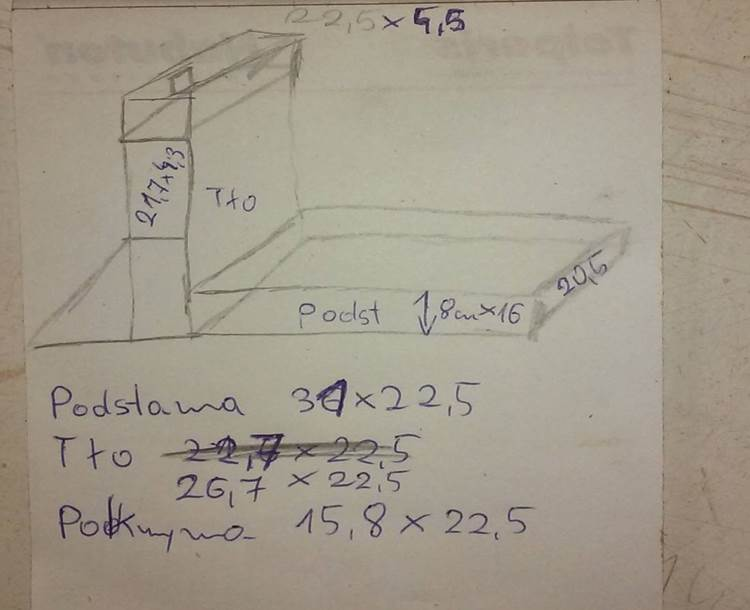 22,5 × 4,5
21,7 × 4,3
Tło
20,5
Podst 8cm × 16
Podstawa 31 × 22,5
Tło 22,7 × 22,5
26,7 × 22,5
Pokrywa 15,8 × 22,5